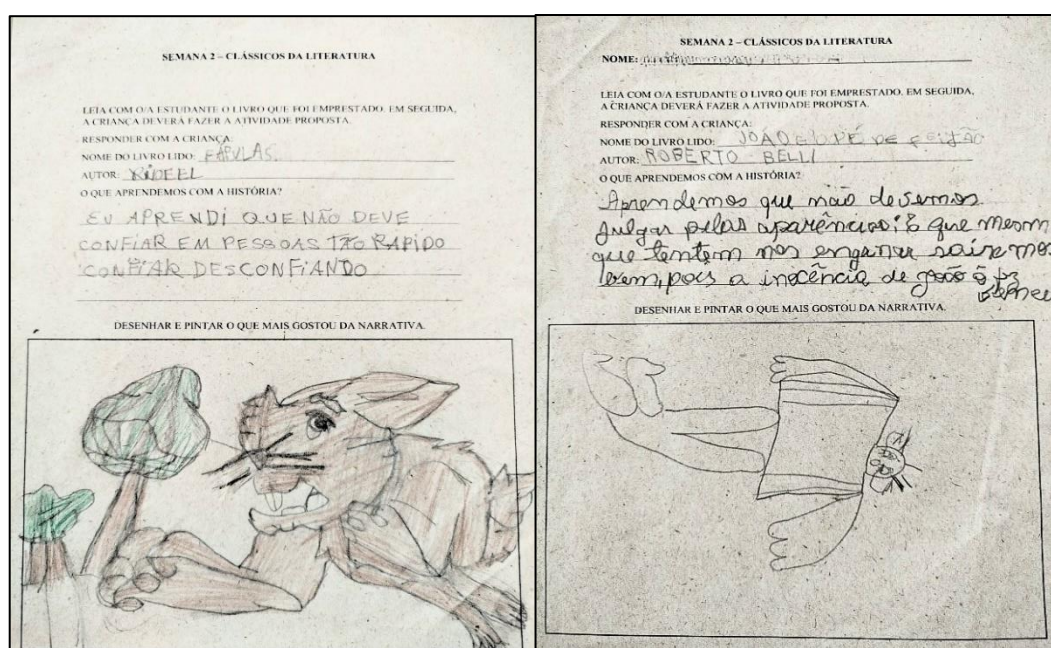 SEMANA 2 – CLÁSSICOS DA LITERATURA
LEIA COM O/A ESTUDANTE O LIVRO QUE FOI EMPRESTADO. EM SEGUIDA,
A CRIANÇA DEVERÁ FAZER A ATIVIDADE PROPOSTA.
RESPONDER COM A CRIANÇA:
NOME DO LIVRO LIDO: FÁBULAS.
AUTOR: RIDEEL
O QUE APRENDEMOS COM A HISTÓRIA?
EU APRENDI QUE NÃO DEVE
CONFIAR EM PESSOAS TÃO RAPIDO
CONFIAR DESCONFIANDO
DESENHAR E PINTAR O QUE MAIS GOSTOU DA NARRATIVA.
SEMANA 2 – CLÁSSICOS DA LITERATURA
NOME:
LEIA COM O/A ESTUDANTE O LIVRO QUE FOI EMPRESTADO. EM SEGUIDA,
A CRIANÇA DEVERÁ FAZER A ATIVIDADE PROPOSTA.
RESPONDER COM A CRIANÇA:
NOME DO LIVRO LIDO: JOÃO E O PÉ DE FEIJÃO
AUTOR: ROBERTO BELLI
O QUE APRENDEMOS COM A HISTÓRIA?
Aprendemos que não devemos
julgar pelas aparências. E que mesmo
que tentem nos enganar saíremos
bem, pois a inocência de joão o fez
vencer
DESENHAR E PINTAR O QUE MAIS GOSTOU DA NARRATIVA.